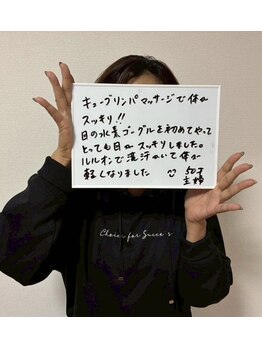 キューブリンパマッサージで体が
スッキリ!!
目の水素ゴーグルを初めてやって
とっても目がスッキリしました。
ルルオンで滝汗かいて体が
軽くなりました 50才
主婦
Choice for Succe's